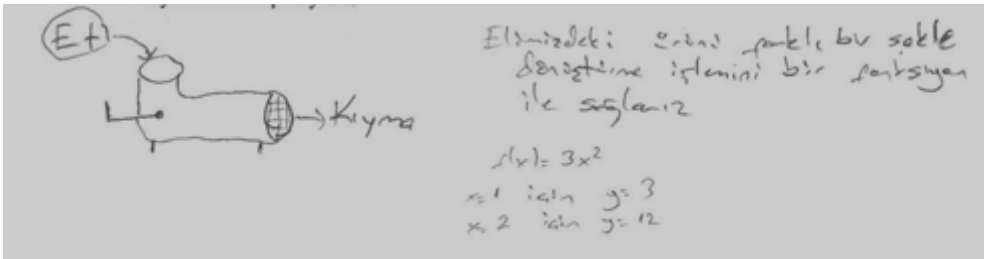 Et
Kıyma
Elimizdeki ürünü farklı bir şekle
dönüştürme işlemini bir fonksiyon
ile sağlarız
f(x)= 3x²
x=1 için y= 3
x=2 için y=12